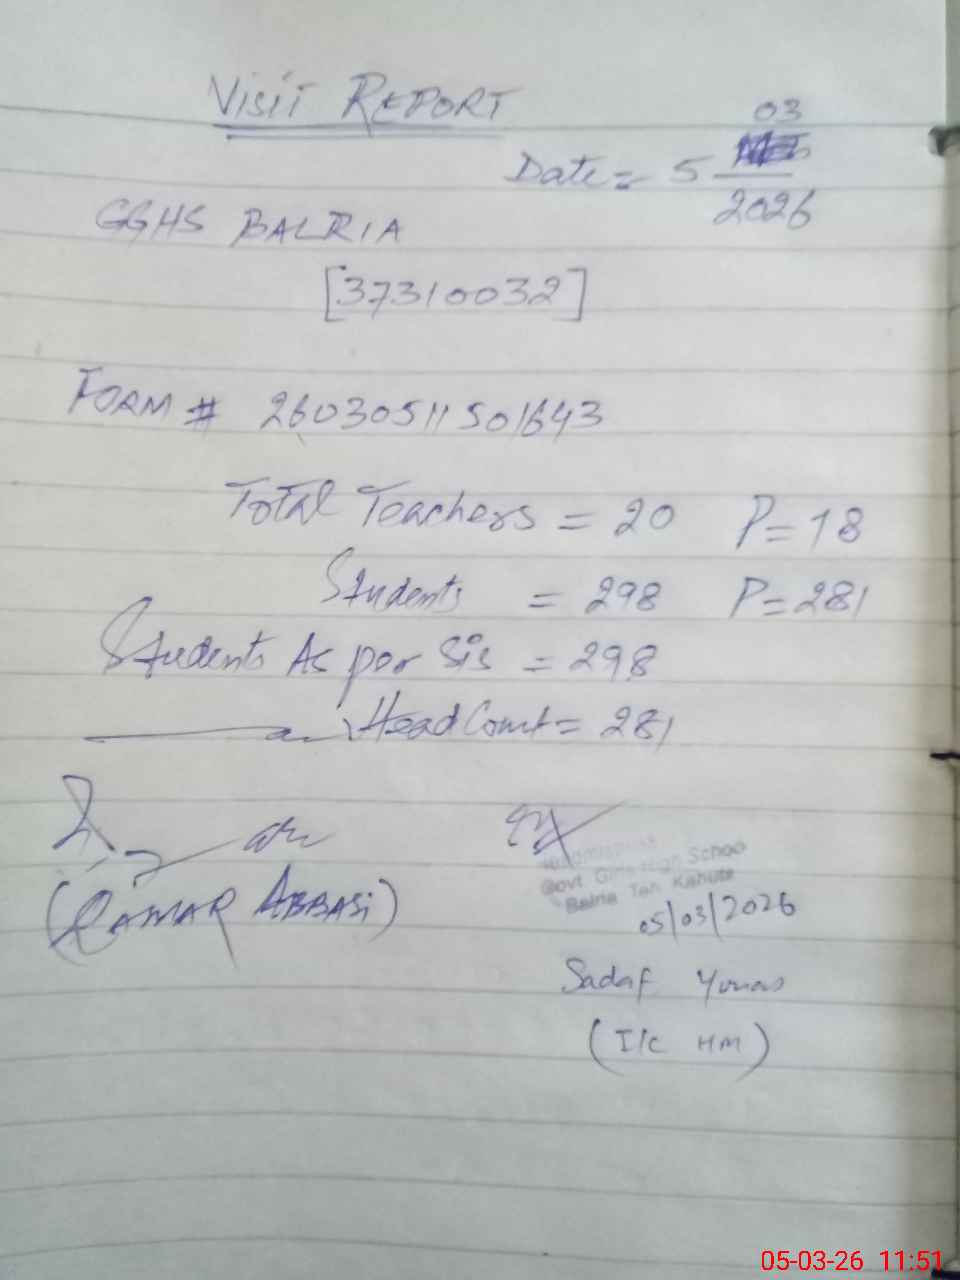 VISIT REPORT
Date = 5 03
2026
GGHS BALRIA
[37310032]
FORM # 26030511501643
Total Teachers = 20 P=18
Students = 298 P=281
Students As per Sis = 298
Head Count = 281
(QAMAR ABBASi)
Headmistress
Govt Girls High School
Balria Teh Kahuta
05/03/2026
Sadaf Younas
(I/c HM)
05-03-26 11:51